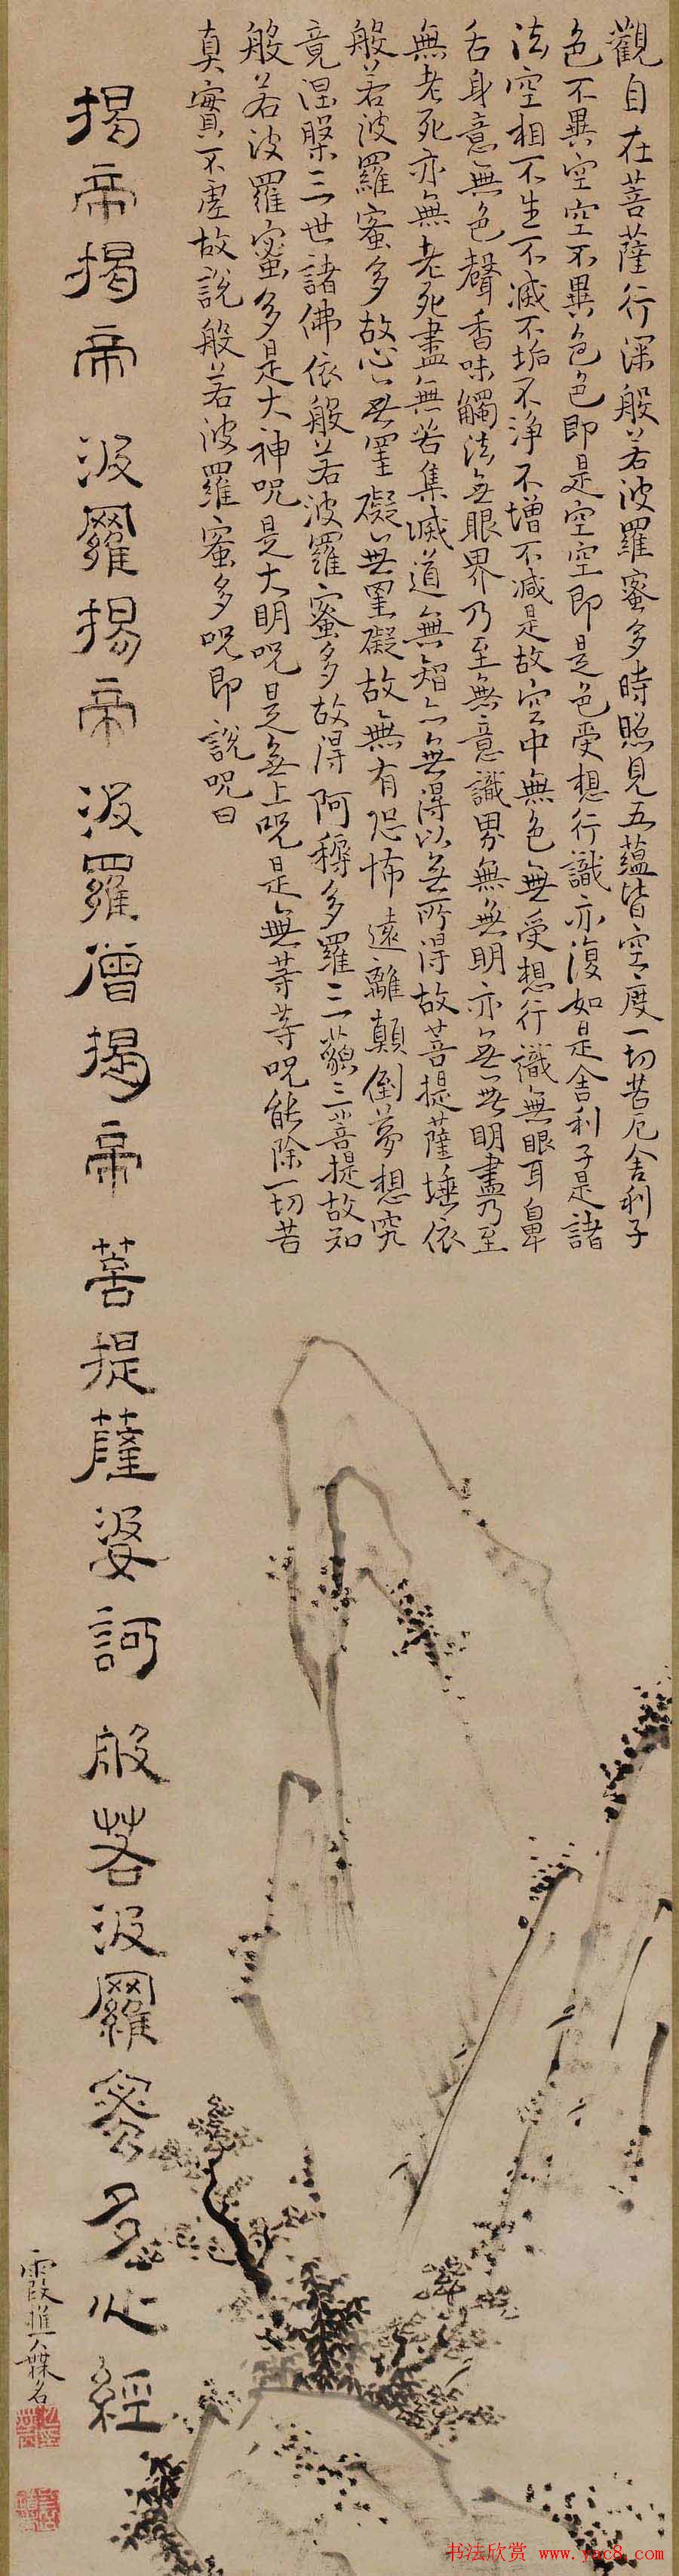 觀自在菩薩行深般若波羅蜜多時照見五蘊皆空度一切苦厄舍利子
色不異空空不異色色即是空空即是色受想行識亦復如是舍利子是諸
法空相不生不滅不垢不淨不增不減是故空中無色無受想行識無眼耳鼻
舌身意無色聲香味觸法無眼界乃至無意識界無無明亦無無明盡乃至
無老死亦無老死盡無苦集滅道無智亦無得以無所得故菩提薩埵依
般若波羅蜜多故心無罣礙無罣礙故無有恐怖遠離顛倒夢想究
竟涅槃三世諸佛依般若波羅蜜多故得阿耨多羅三藐三菩提故知
般若波羅蜜多是大神咒是大明咒是無上咒是無等等咒能除一切苦
真實不虛故說般若波羅蜜多咒即說咒曰
揭帝揭帝波羅揭帝波羅僧揭帝菩提薩婆訶般若波羅蜜多心經
霞樵
书法欣赏 www.yac8.com